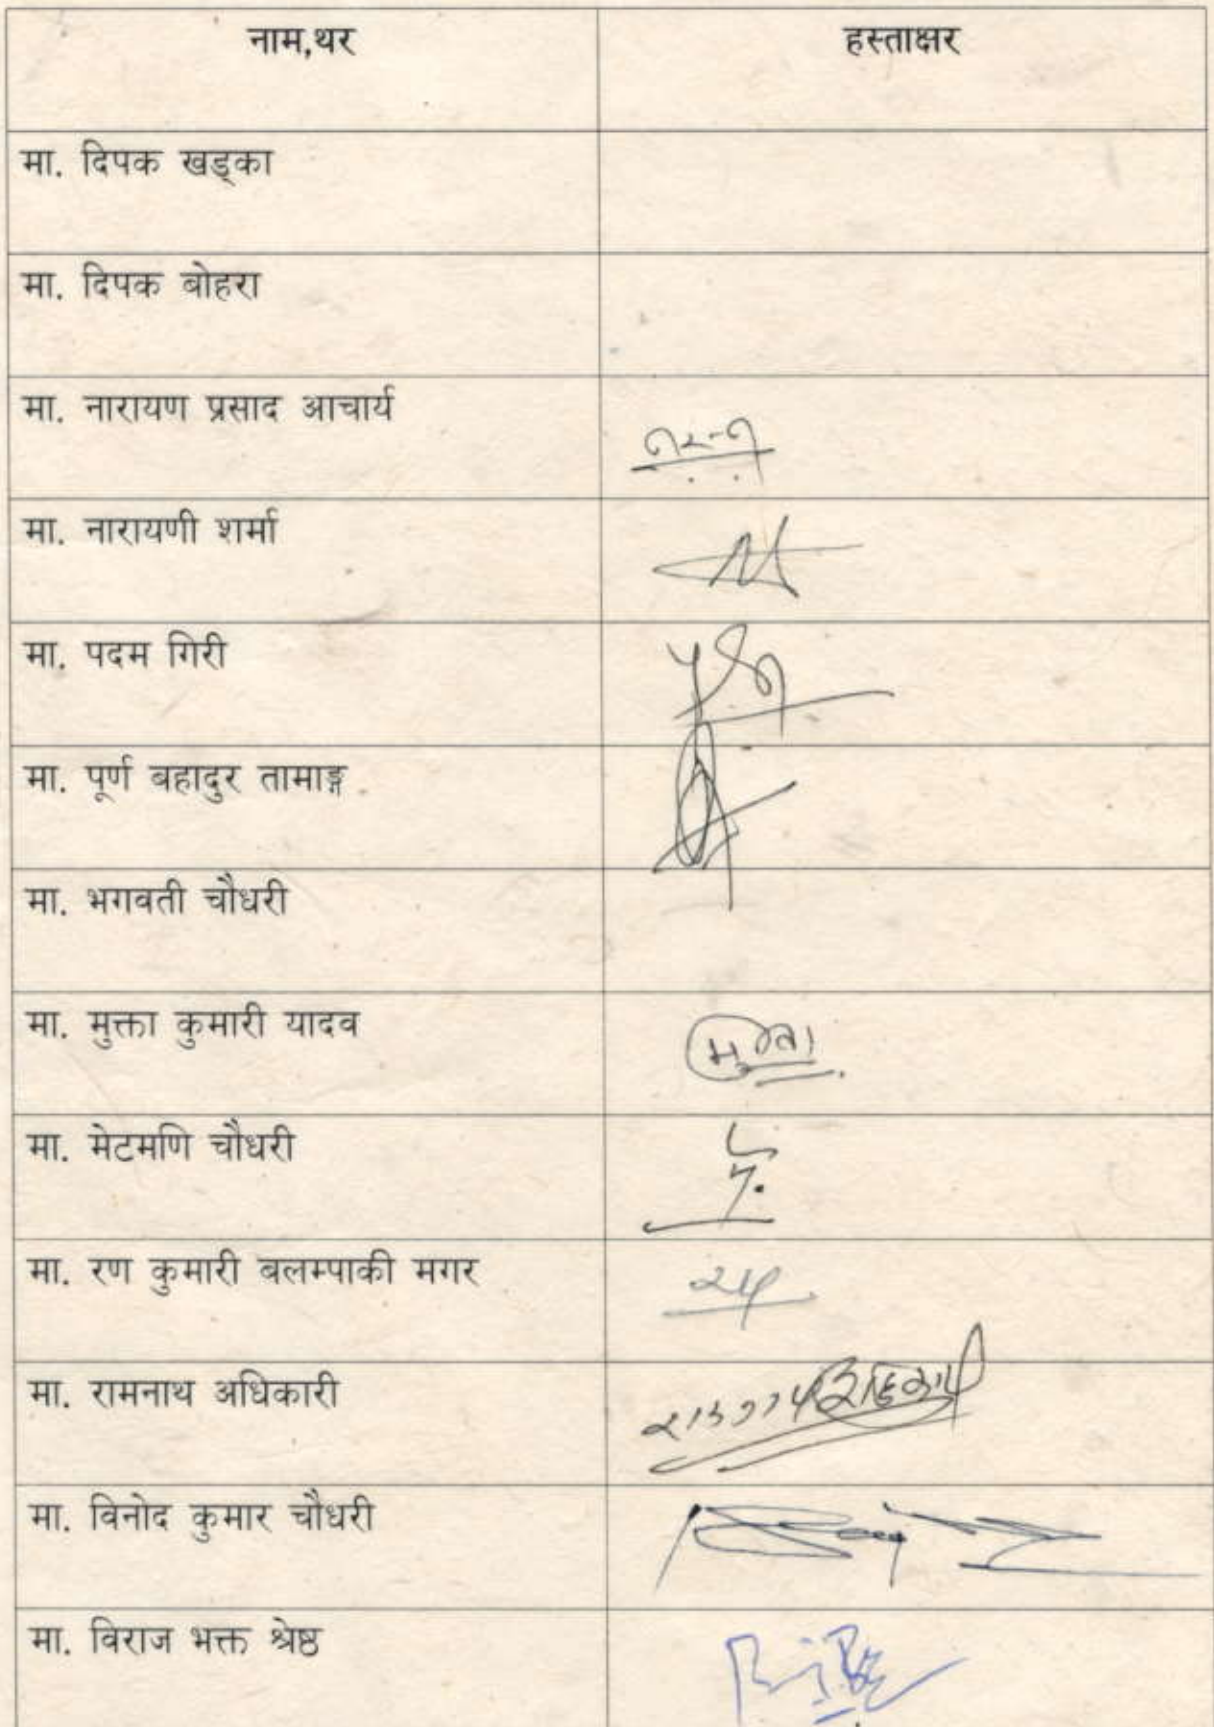 नाम,थर हस्ताक्षर
मा. दिपक खड्का
मा. दिपक बोहरा
मा. नारायण प्रसाद आचार्य
मा. नारायणी शर्मा
मा. पदम गिरी
मा. पूर्ण बहादुर तामाङ्ग
मा. भगवती चौधरी
मा. मुक्ता कुमारी यादव
मा. मेटमणि चौधरी
मा. रण कुमारी बलम्पाकी मगर
मा. रामनाथ अधिकारी
मा. विनोद कुमार चौधरी
मा. विराज भक्त श्रेष्ठ